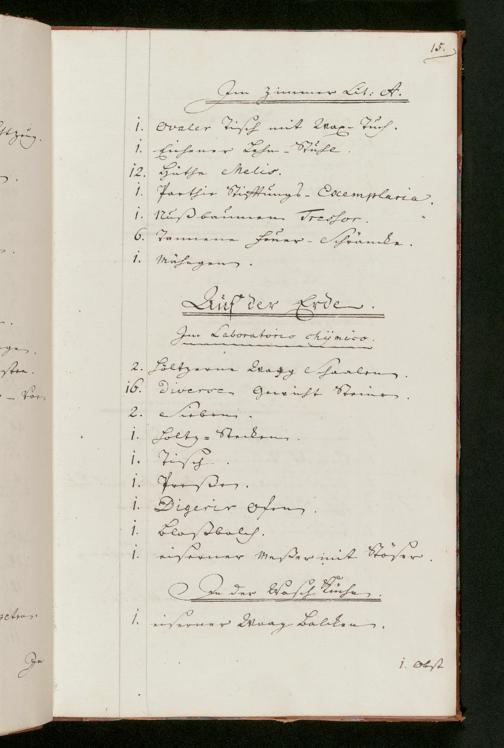 15.
Im Zimmer Lit: A.
1. Ovaler Tisch mit Wax-Tuch.
1. Eichener Lehn-Stuhl.
12. Hüthe Melis.
1. Parthie Stifftungs-Exemplaria.
1. Nußbäumener Tresor.
6. Tannene Feuer-Schräncke.
1.
Auf der Erde.
Im Laboratorio chijmico.
2. Höltzerne Waag Schaalen.
16. Diverse Gewicht Steine.
2. Sieben.
1. Holtz-Stecken.
1. Tisch.
1. Preßen.
1. Digerir Ofen.
1. Blaßbalch.
1. eiserner mit Stößer.
In der Wasch Küche.
1. eiserner Waag Balcken.
1. Obst